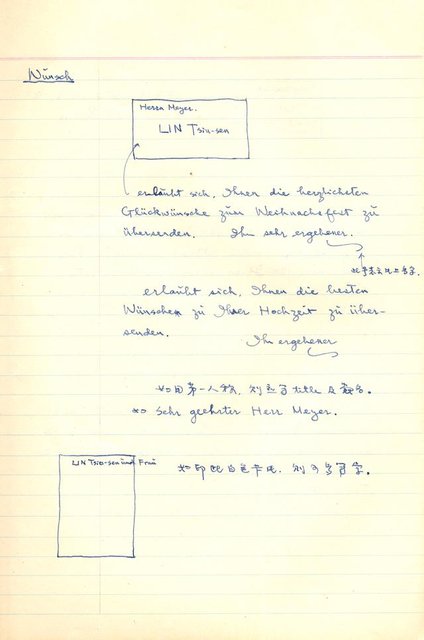 Wünsch
Herrn Meyer.
LIN Tsiu-sen
erlaubt sich, Ihnen die herzlichsten
Glückwünsche zum Weihnachtsfest zu
übersenden. Ihr sehr ergebener.
erlaubt sich, Ihnen die besten
Wünschen zu Ihrer Hochzeit zu über-
senden.
Ihr ergebener
如用第一人称, 则应写 title 及签名.
如 Sehr geehrter Herr Meyer.
LIN Tsiu-sen und Frau
如印成白色卡片, 则可写字.